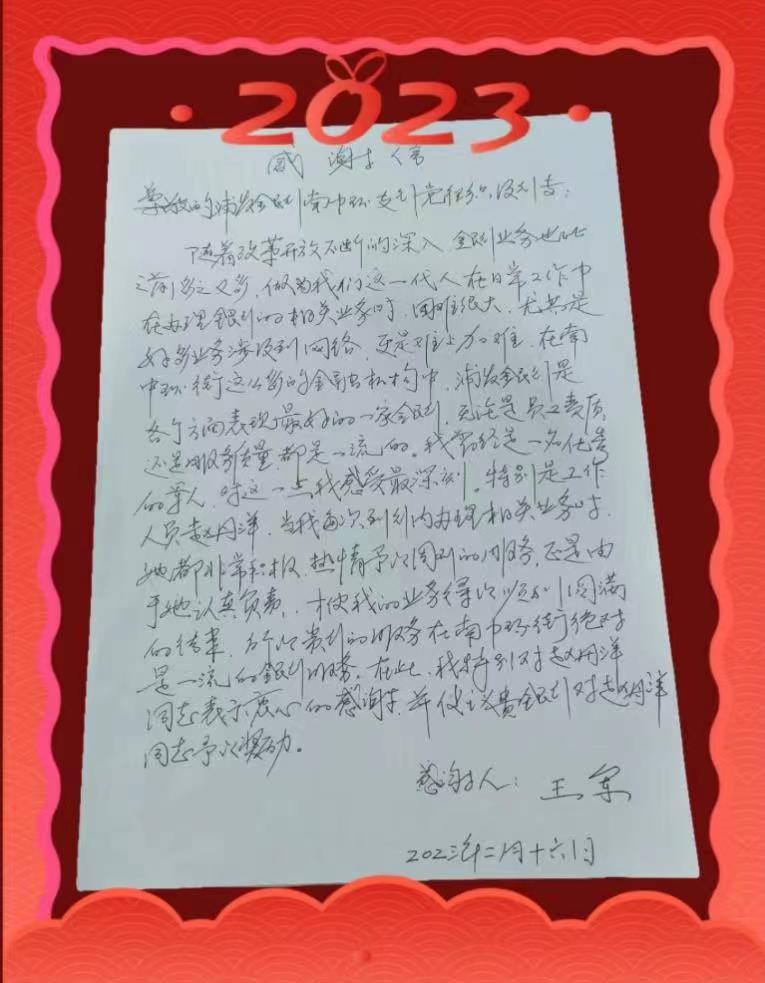 2023
感谢信
尊敬的浦发银行南中环支行党组织及行长：
随着改革开放不断的深入，金融业务也比
之前多之又多，做为我们这一代人在日常工作中
在办理银行的相关业务时，困难很大，尤其是
好多业务涉及到网络，更是难上加难，在南
中环街这么多的金融机构中，浦发银行是
各个方面表现最好的一家银行，无论是员工素质，
还是服务质量，都是一流的。我曾经是一名优秀
的军人，对这一点我感受最深刻。特别是工作
人员赵丹洋，当我每次到行内办理相关业务时，
她都非常积极，热情予以周到的服务，正是由
于她认真负责，才使我的业务得以顺利圆满
的结束，所以贵行的服务在南中环街绝对
是一流的银行服务。在此，我特别对赵丹洋
同志表示衷心的感谢，并建议贵银行对赵丹洋
同志予以奖励。
感谢人：王军
2023年二月十六日